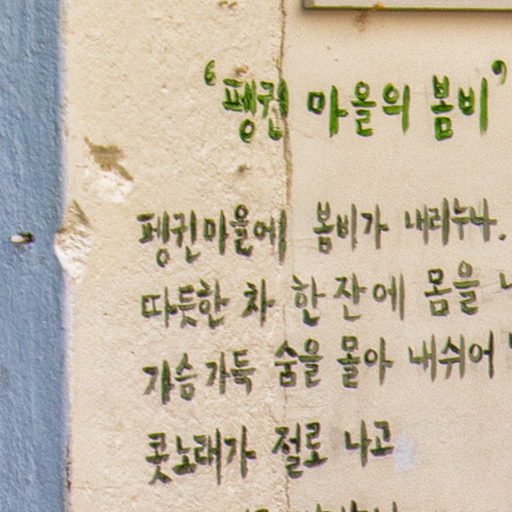 “펭귄 마을의 봄비”
펭귄마을에 봄비가 내리누나.
따듯한 차 한 잔에 몸을
가슴 가득 숨을 몰아 내쉬어
콧노래가 절로 나고